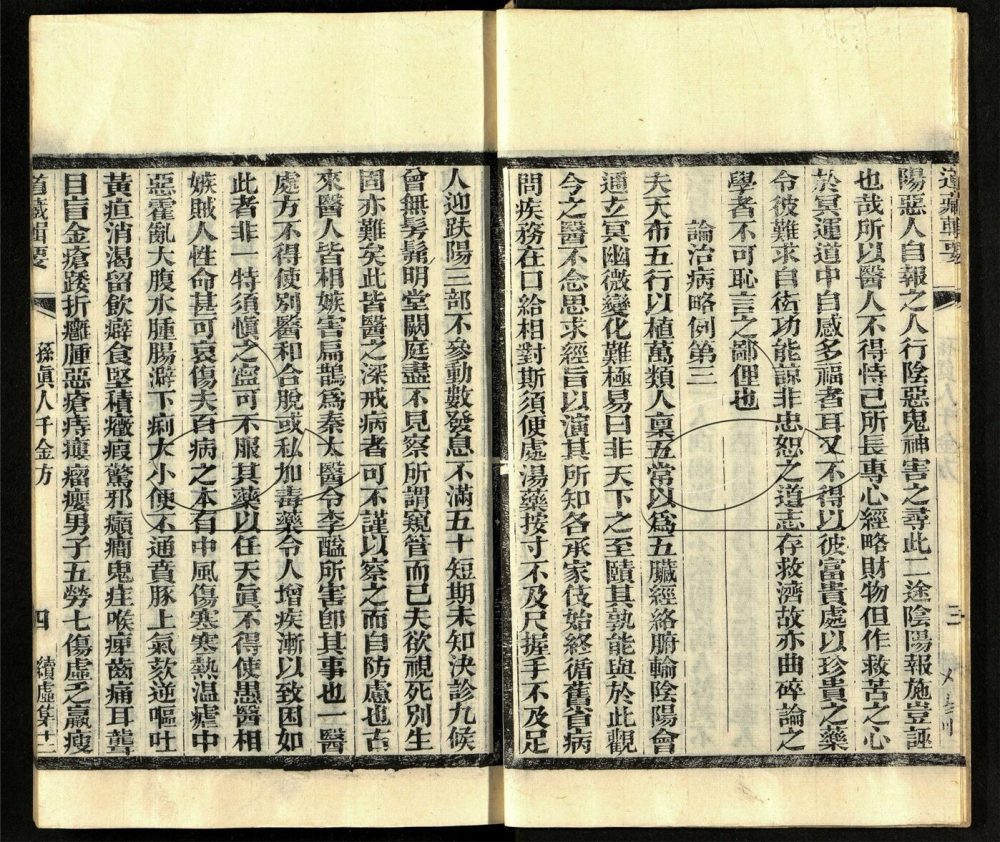 道藏輯要 三
陽惡人自報之人行陰惡鬼神害之尋此二途陰陽報施豈誣
也哉所以醫人不得恃己所長專心經略財物但作救苦之心
於冥運道中自感多福者耳又不得以彼富貴處以珍貴之藥
令彼難求自衒功能諒非忠恕之道志存救濟故亦曲碎論之
學者不可恥言之鄙俚也
論治病略例第三
夫天布五行以植萬類人稟五常以爲五臟經絡腑輸陰陽會
通玄冥幽微變化難極易曰非天下之至賾其孰能與於此觀
今之醫不念思求經旨以演其所知各承家伎始終循舊省病
問疾務在口給相對斯須便處湯藥按寸不及尺握手不及足
人迎趺陽三部不參動數發息不滿五十短期未知決診九候
曾無髣髴明堂闕庭盡不見察所謂窺管而已夫欲視死別生
固亦難矣此皆醫之深戒病者可不謹以察之而自防慮也古
來醫人皆相嫉害扁鵲爲秦太醫令李醯所害卽其事也一醫
處方不得使別醫和合脫或私加毒藥令人增疾漸以致困如
此者非一特須愼之寧可不服其藥以任天眞不得使愚醫相
嫉賊人性命甚可哀傷夫百病之本有中風傷寒寒熱温瘧中
惡霍亂大腹水腫腸澼下痢大小便不通賁豚上氣欬逆嘔吐
黃疸消渴留飲癖食堅積癥瘕驚邪癲癎鬼疰喉痺齒痛耳聾
目盲金瘡踒折癰腫惡瘡痔瘻瘤癭男子五勞七傷虛乏羸瘦
道藏輯要 孫眞人千金方 四 續虛集十二